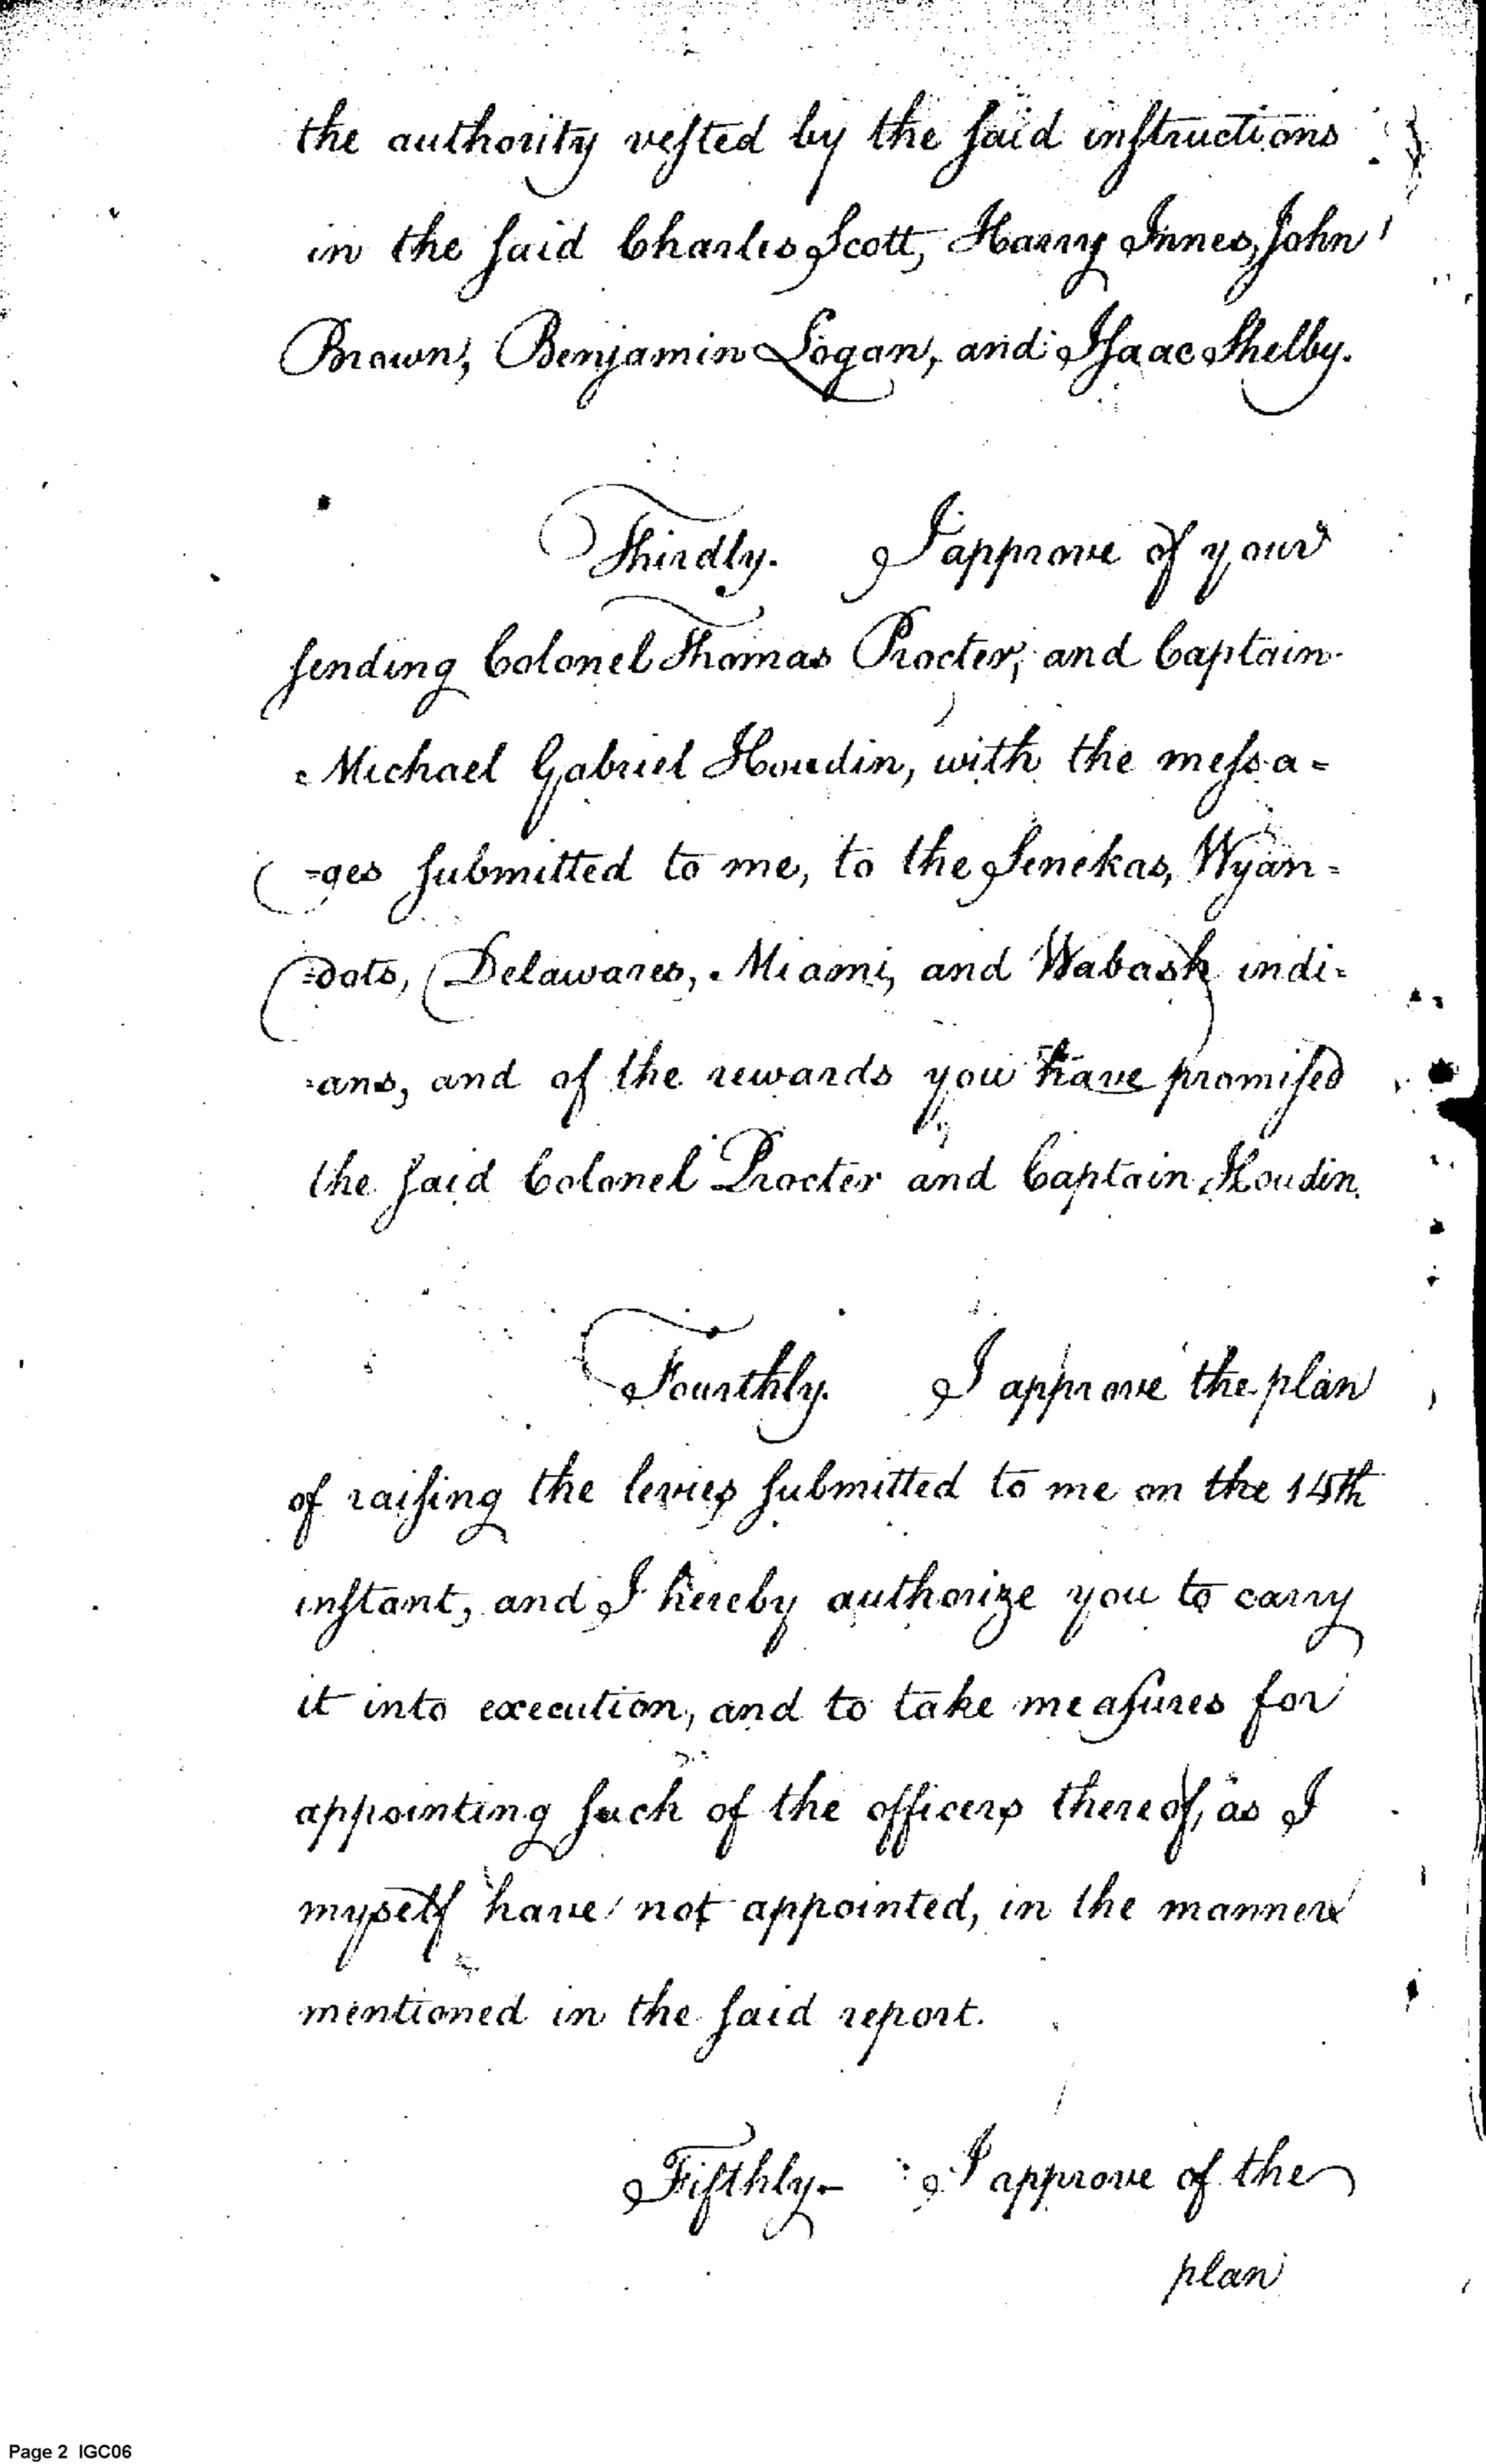 the authority vested by the said instructions
in the said Charles Scott, Harry Innes, John
Brown, Benjamin Logan, and Isaac Shelby.
Thirdly. I approve of your
sending Colonel Thomas Procter, and Captain
Michael Gabriel Houdin, with the messa=
=ges submitted to me, to the Senekas, Wyan=
=dots, Delawares, Miami, and Wabash indi=
=ans, and of the rewards you have promised
the said Colonel Procter and Captain Houdin.
Fourthly. I approve the plan
of raising the levies submitted to me on the 15th
instant, and I hereby authorize you to carry
it into execution, and to take measures for
appointing such of the officers thereof, as I
myself have not appointed, in the manner
mentioned in the said report.
Fifthly. I approve of the
plan
Page 2 IGC06